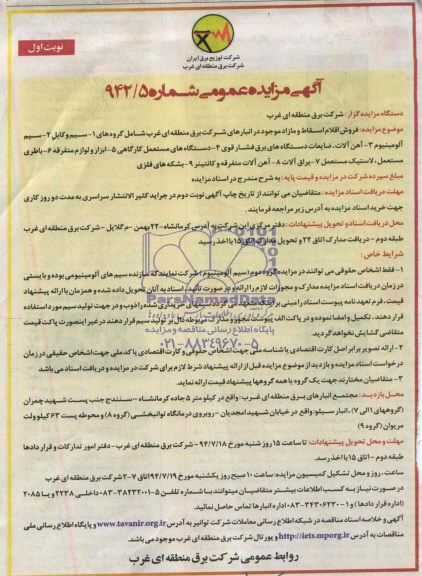 نوبت اول
شرکت توزیع برق ایران
شرکت برق منطقه ای غرب
آگهی مزایده عمومی شماره ۹۴۲/۵
دستگاه مزایده گزار: شرکت برق منطقه ای غرب
موضوع مزایده: فروش اقلام اسقاط و مازاد موجود در انبارهای شرکت برق منطقه ای غرب شامل گروه های ۱- سیم و کابل ۲- سیم
آلومینیوم ۳- آهن آلات، ضایعات دستگاه های برق فشار قوی ۴- دستگاه های مستعمل کارگاهی ۵- ابزار و لوازم متفرقه ۶- باطری
مستعمل، لاستیک مستعمل ۷- یراق آلات ۸- آهن آلات متفرقه و کانتینر ۹- بشکه های فلزی
مبلغ سپرده شرکت در مزایده و قیمت پایه: به شرح مندرج در اسناد مزایده
مهلت دریافت اسناد مزایده: متقاضیان می توانند از تاریخ چاپ آگهی نوبت دوم در جراید کثیر الانتشار سراسری به مدت دو روز کاری
جهت خرید اسناد مزایده به آدرس زیر مراجعه فرمایند.
محل دریافت اسناد و تحویل پیشنهادات: دفتر مرکزی این شرکت به آدرس کرمانشاه-۲۲بهمن -م گلایل- شرکت برق منطقه ای غرب
طبقه دوم - دریافت مدارک اتاق ۲۲ و تحویل مدارک اتاق ۱۵ با اخذ رسید
شرایط خاص:
۱- فقط اشخاص حقوقی می توانند در مزایده گروه دوم (سیم آلومینیوم) شرکت نمایند که سازنده سیم های آلومینیومی بوده و بایستی
در زمان دریافت اسناد مزایده مدارک و مجوزات لازم را ارائه و در صورت تأیید، اسناد به آنان تحویل داده شده و همزمان با ارائه پیشنهاد
قیمت، فرم تعهد نامه پیوست اسناد را مبنی بر اینکه متعهد می گردند سیم های خریداری شده را ذوب و در جهت تولید سیم مورد استفاده
قرار دهند، تکمیل و امضا نموده و در پاکت الف پیوست مجوز و مدارک مربوطه دال بر تولید سیم قرار دهند در غیر اینصورت پاکت قیمت
متقاضی گشایش نخواهد گردید.
۲- ارائه تصویر برابر اصل کارت اقتصادی یا شناسه ملی جهت اشخاص حقوقی و کارت اقتصادی یا کد ملی جهت اشخاص حقیقی در زمان
درخواست اسناد مزایده و بازدید از موضوع مزایده قبل از ارائه پیشنهاد شرط لازم برای شرکت در مزایده و دریافت اسناد می باشد
۳- متقاضیان مختارند جهت یک گروه یا همه گروهها پیشنهاد قیمت ارائه نمایند.
محل بازدید: مجتمع انبارهای برق منطقه ای غرب: واقع در کیلو متر ۵ جاده کرمانشاه - سنندج جنب پست شهید چمران
(گروههای ۱ الی ۷)، انبار سیلو: واقع در خیابان شهید امجدیان - روبروی درمانگاه توانبخشی (گروه ۸) و محوطه پست ۶۳ کیلو ولت
مریوان (گروه ۹)
مهلت و محل تحویل پیشنهادات: تا ساعت ۱۵ روز شنبه مورخ ۹۴/۷/۱۸ - شرکت برق منطقه ای غرب - دفتر امور تدارکات و قرار دادها
طبقه دوم - اتاق ۱۵ با اخذ رسید.
ساعت، روز و محل تشکیل کمیسیون مزایده: ساعت ۱۰ صبح روز یکشنبه مورخ ۹۴/۷/۱۹ اتاق ۷-۲ شرکت برق منطقه ای غرب
در صورت نیاز به کسب اطلاعات بیشتر متقاضیان میتوانند با شماره تلفن ۵-۳۸۲۳۲۰۰۱-۰۸۳ داخلی ۲۲۳۸ و یا ۲۰۸۵
(اداره قرار دادها) و ۱-۳۴۳۰۶۳۳۰-۰۸۳ اداره انبارها تماس حاصل نمائید.
آگهی و خلاصه اسناد مناقصه در شبکه اطلاع رسانی معاملات شرکت توانیر به آدرس www.tavanir.org.ir و پایگاه اطلاع رسانی ملی
مناقصات به آدرس http://iets.mporg.ir و پورتال شرکت برق منطقه ای غرب موجود می باشد.
روابط عمومی شرکت برق منطقه ای غرب
ParsNamadData
پایگاه اطلاع رسانی مناقصه و مزایده
۰۲۱-۸۸۳۴۹۶۷۰-۵